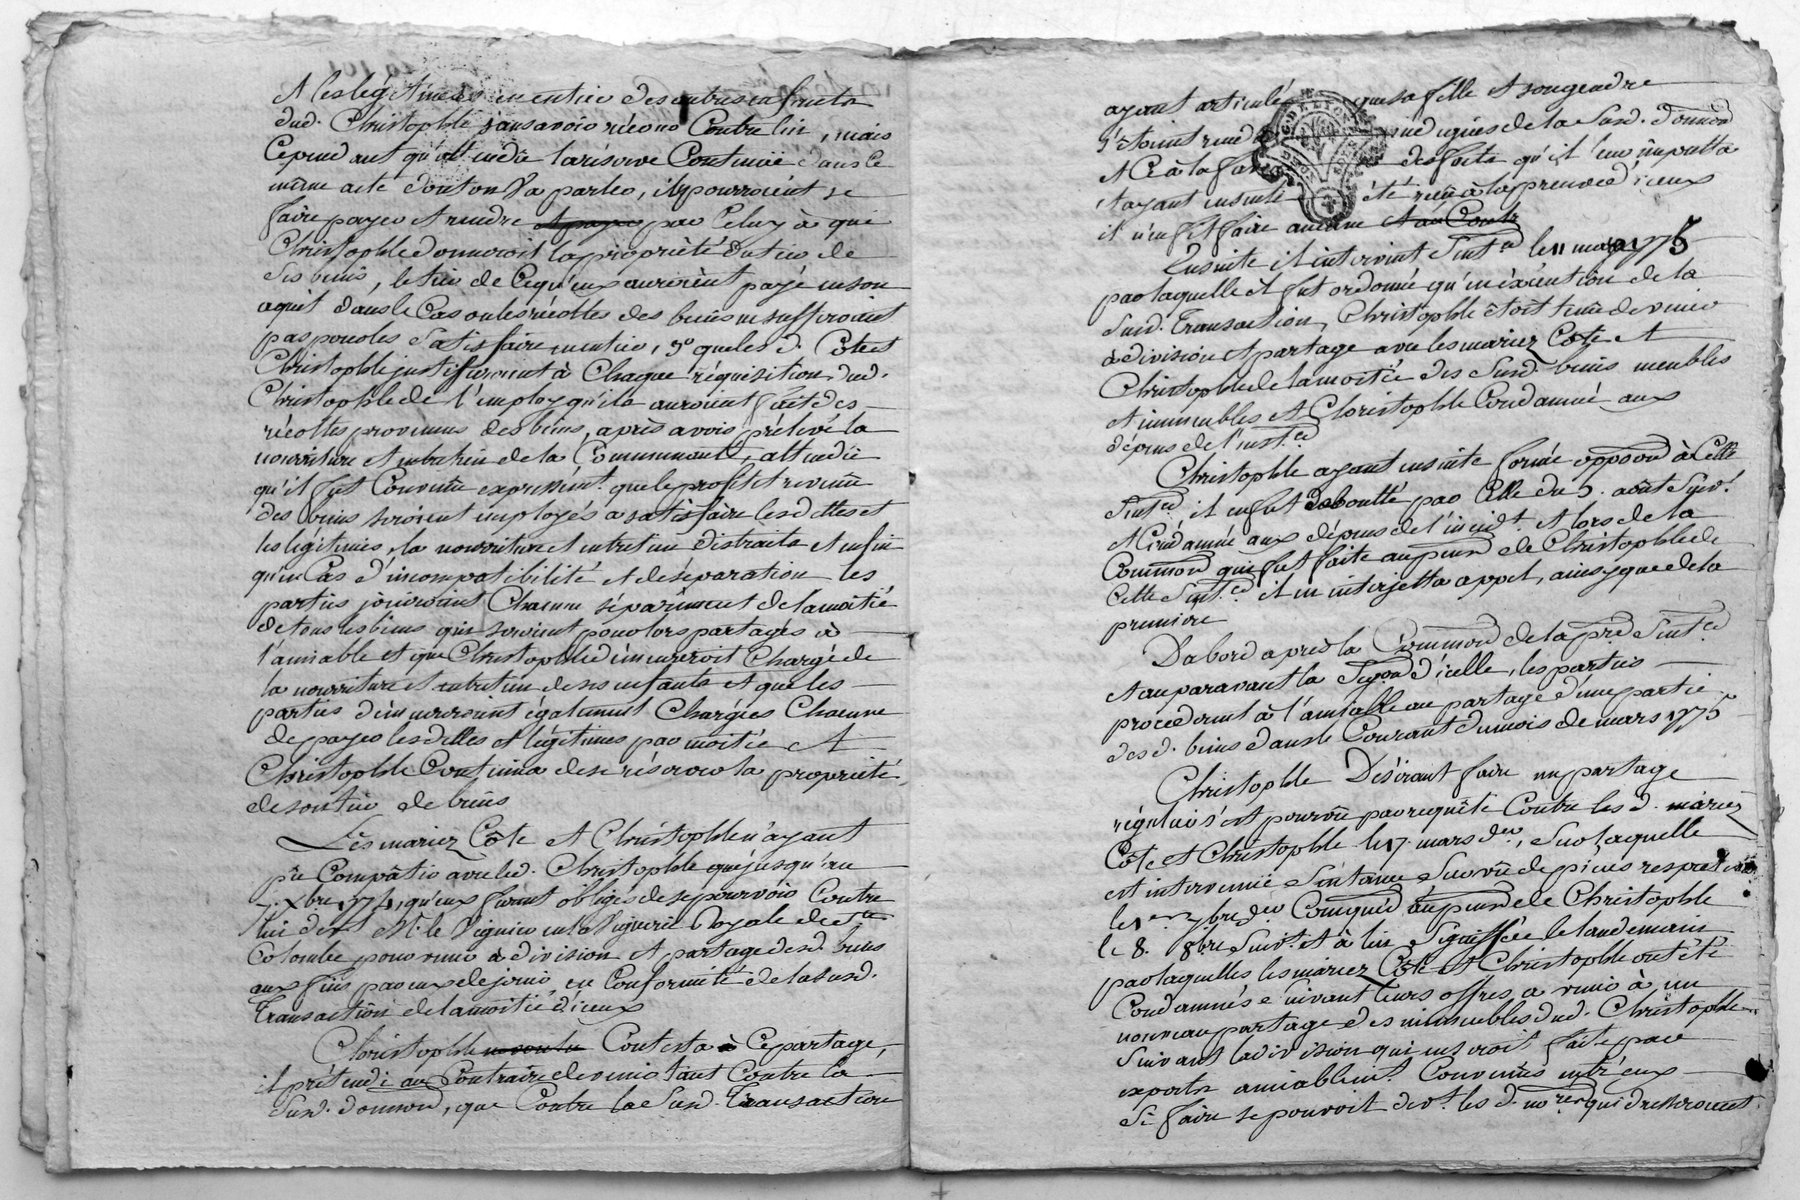 et les légitimes en entier des autres enfants
dud. Christophle sans avoir récour Contre lui, mais
Cependant qu'attendu la réserve Contenüe dans le
même acte dont on a parlé, ils pourroient se
faire payer et rendre par Celuy à qui
Christophle donneroit la propriété du tiers de
ses biens, le tiers de Ce qu'eux auroient payé en son
aquit dans le Cas ou les récoltes des biens ne suffiroient
pas pour les satisfaire en entier, 3° que les d. Cote et
Christophle justifieroient à Chaque réquisition dud.
Christophle de l'employ qu'ils auroient fait des
récoltes provenues des biens, après avoir prélevé la
nourriture et entretien de la Communauté, attendü
qu'il fut Convenu expressément que le profit et revenu
des biens seroient employés a satisfaire les dettes et
les légitimes, la nourriture et entretien distraits et enfin
qu'en Cas d'incompatibilité et de séparation les
parties jouiroient Chacune séparément de la moitié
de tous les biens qui seroient pour lors partagés à
l'amiable et que Christophle demeureroit Chargé de
la nourriture et entretien de ses enfants et que les
parties demeureroient également Chargées Chacune
de payer les dettes et légitimes par moitié et
Christophle Continua de se réserver la propriété
de son tiers de biens
Les mariez Côte et Christophle n'ayant
pû Compâtir avec led. Christophle que jusqu'au
5. Xbre 1774, qu'eux furent obligés de se pourvoir Contre
lui devt. M. le Viguier en la Viguerie Royale de Ste
Colombe pour venir à division et partage desd. biens
aux fins par eux de jouir, en Conformité de la susd.
Transaction de la moitié d'iceux
Christophle Contesta à Ce partage,
il prétendi au Contraire de venir tant Contre la
susd. donnon, que Contre la susd. Transaction
ayant articulé que sa fille et son gendre
s'étoient rend indignes de la susd. donnon
et Ce à la fa des faits qu'il leur imputta
et ayant ensuite été reçû à la preuve d'iceux
il n'en fit faire aucune et au Contr
Ensuite il intervint Sentce le 11 mars 1775
par laquelle il fut ordonné qu'en éxécution de la
susd. Transaction, Christophle étoit tenu de venir
à division et partage avec les mariez Côte et
Christophle de la moitié des susd. biens meubles
et immeubles et Christophle Condamné aux
dépens de l'instce
Christophle ayant ensuite formé opposon à Cette
Sentce il en fut déboutté par Celle du 5. août suivt.
et Condamné aux dépens de l'incidt. et lors de la
Common qui fut faite au proc de Christophle de
Cette Sentce il en interjetta appel, ainsy que de la
première
D'abord après la Common de la pre Sentce
et auparavant la Sigon d'icelle, les parties
procederent à l'amiable au partage d'une partie
des d. biens dans le Courant du mois de mars 1775
Christophle Désirant faire un partage
régulier s'est pourvû par requête Contre les d. mariez
Côte et Christophle le 17. mars der, sur laquelle
est intervenüe Sentence sur vû de pièces respectives
le 1er 7bre der Comuniqué au proc de Christophle
le 8. 8bre suivt. et à lui signiffiée le landemain
par laquelles les mariez Côte et Christophle ont été
Condamnés suivant leurs offres, a venir à un
nouveau partage des immeubles dud. Christophle
suivant la division qui en seroit faite par
experts amiablemt. Convenüs entr'eux
si faire se pouvoit devt. les d. nores qui dresseroient